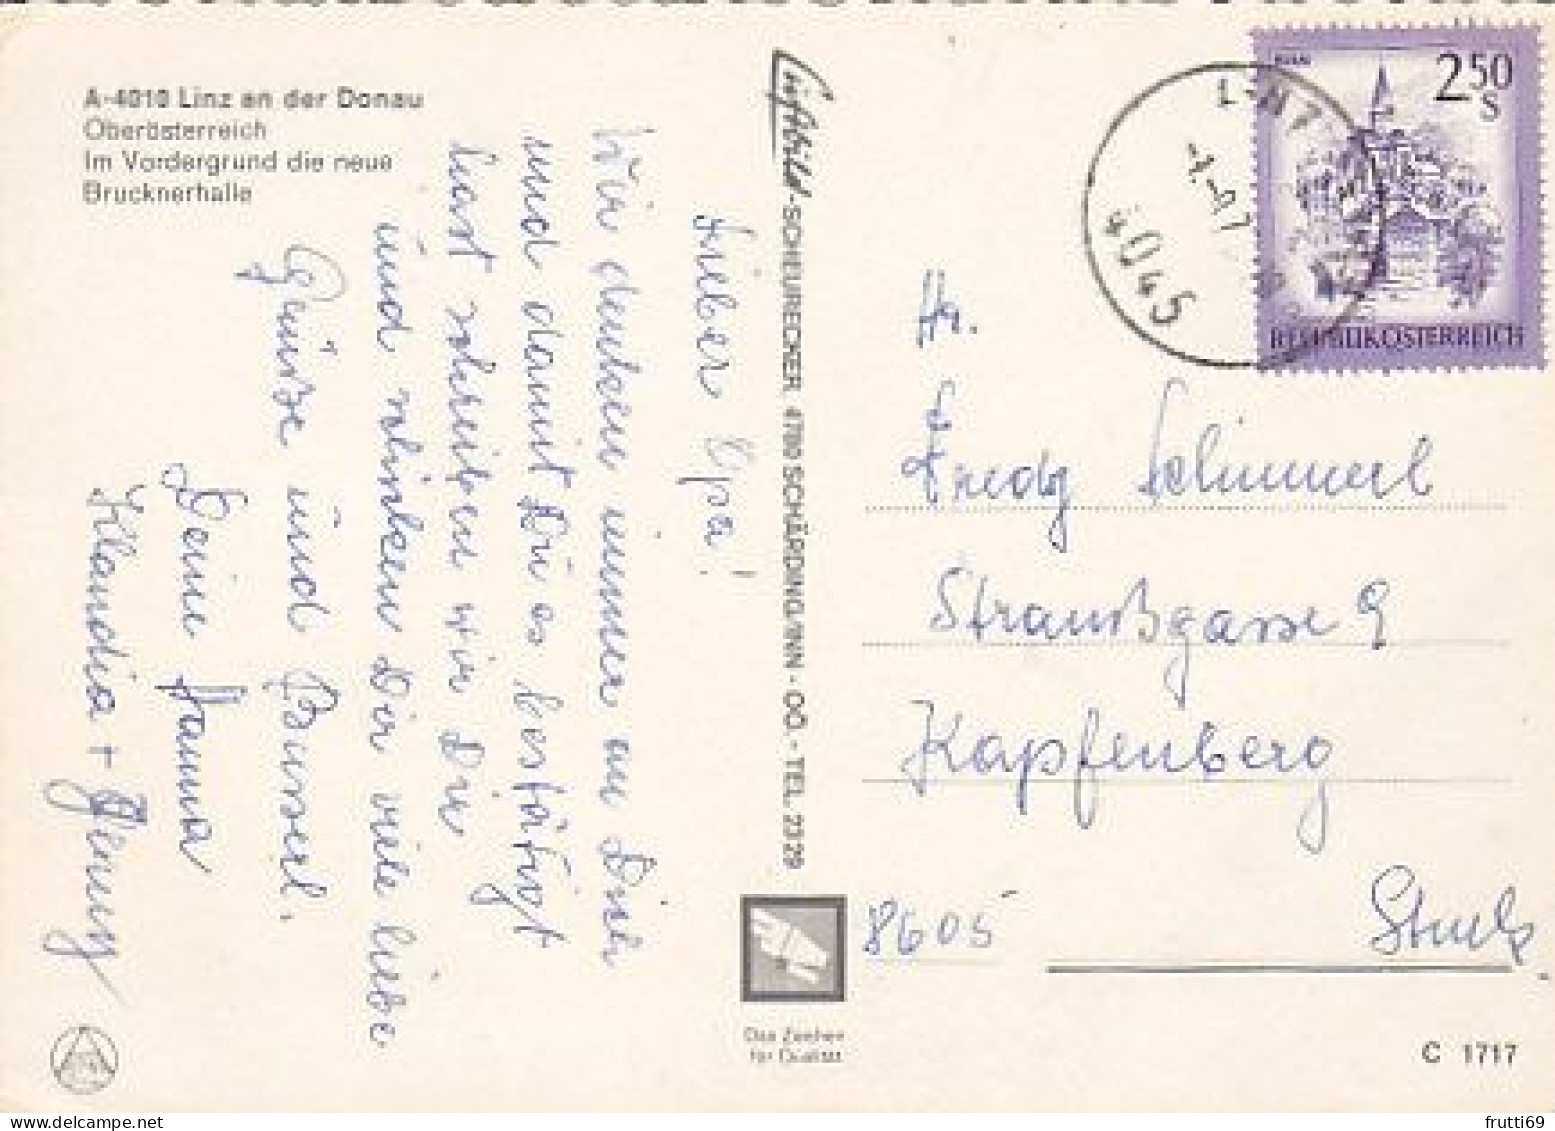 A-4010 Linz an der Donau
Oberösterreich
Im Vordergrund die neue
Brucknerhalle
Lieber Opa!
Wir denken immer an Dich
und damit Du es bestätigt
hast schreiben wir Dir
und schicken Dir viele liebe
Grüße und Busserl.
Deine Hanna
Klaudia + Jenny
Luftbild-SCHEURECKER 4780 SCHÄRDING/INN - OÖ. - TEL. 2329
Das Zeichen
für Qualität
LINZ
4045
2 50
S
REPUBLIK ÖSTERREICH
Hr.
Fredy Schimmerl
Straußgasse 9
Kapfenberg
8605
Stmk
C 1717
frutti69